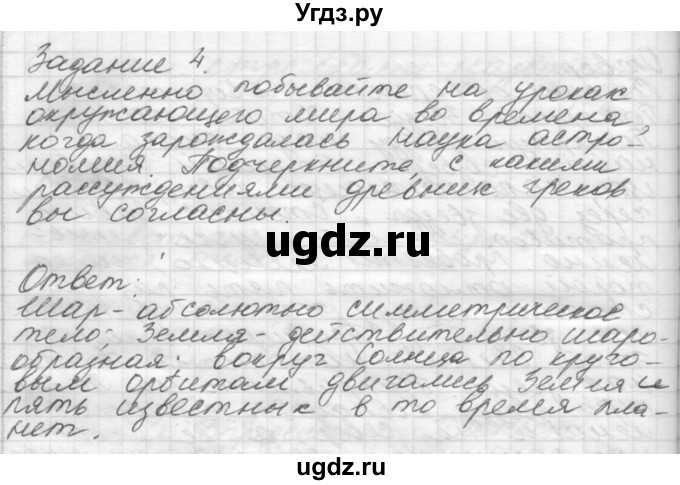 Угдз.ру
Задание 4.
Мысленно побывайте на уроках
окружающего мира во времена
когда зарождалась наука астро-
номия. Подчеркните, с какими
рассуждениями древних греков
вы согласны.
ugdz.ru
Ответ:
Шар - абсолютно симметрическое
тело; Земля - действительно шаро-
образная; вокруг Солнца по круго-
вым орбитам двигались Земля и
пять известных в то время пла-
нет.
ugdz.ru